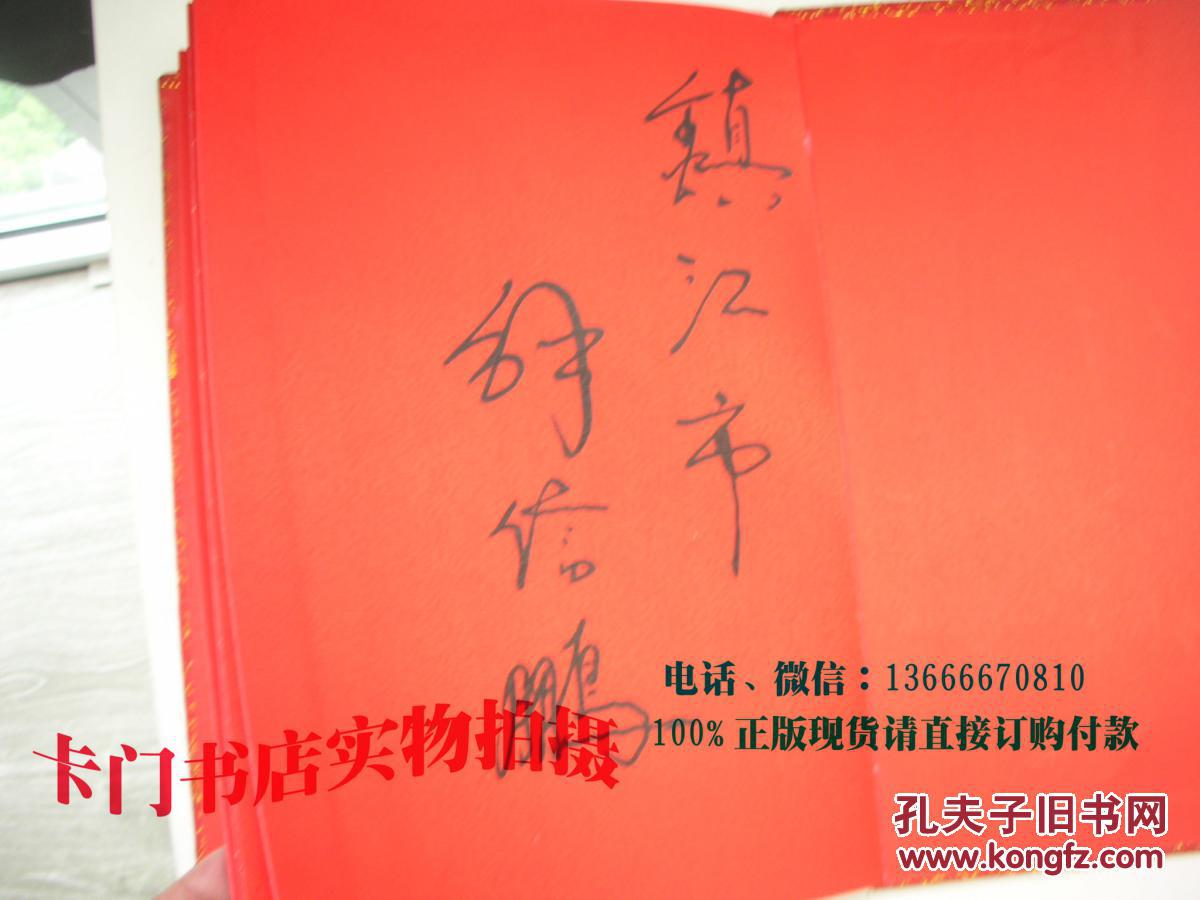 鎮江市
鵬
电话、微信：13666670810
100%正版现货请直接订购付款
卡门书店实物拍摄
孔夫子旧书网
www.kongfz.com